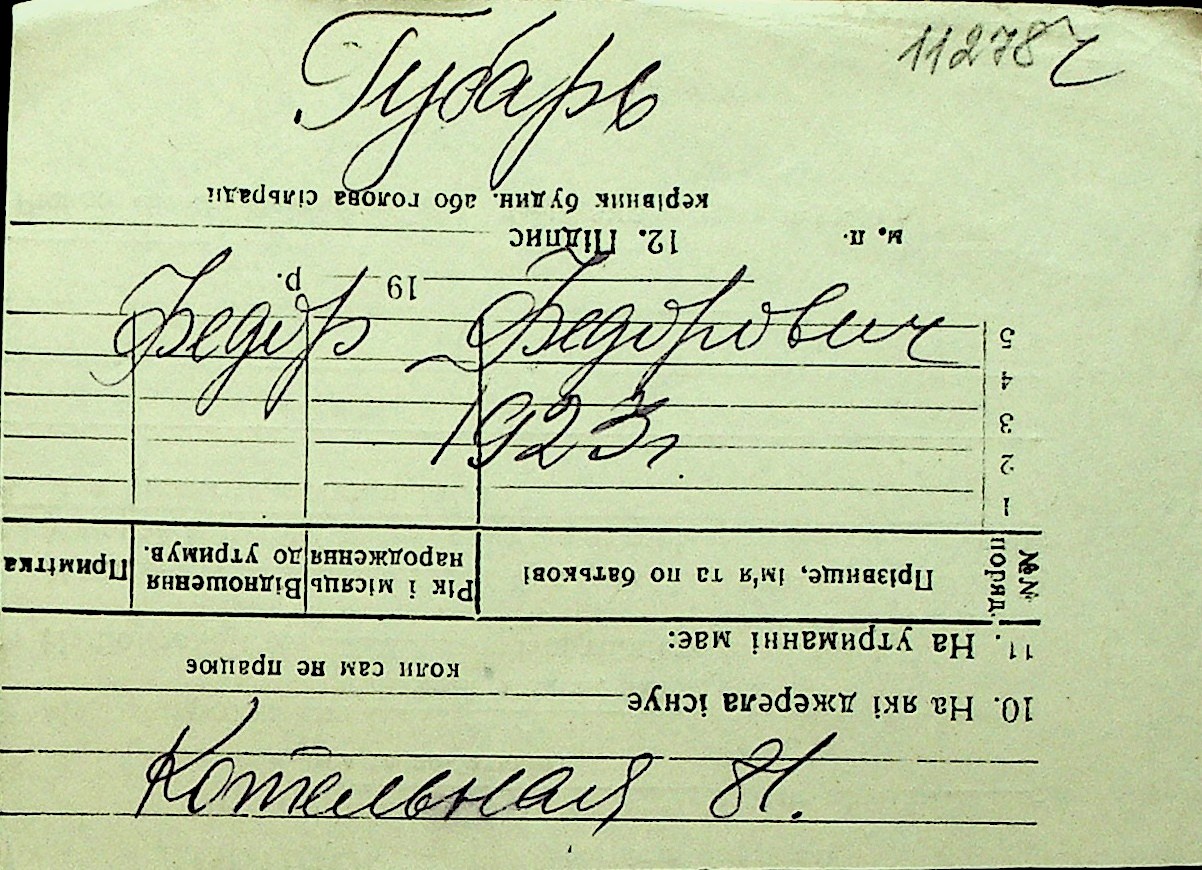 112787
Губарь
Федор Федорович
1923г.
Котельная 81.
10. На які джерела існує
коли сам не працює
11. На утриманні має:
№№ поряд.
Прізвище, ім'я та по батькові
Рік і місяць народження
Відношення до утримув.
Примітка
1
2
3
4
5
19 р.
м. п.
12. Підпис
керівник будин. або голова сільради